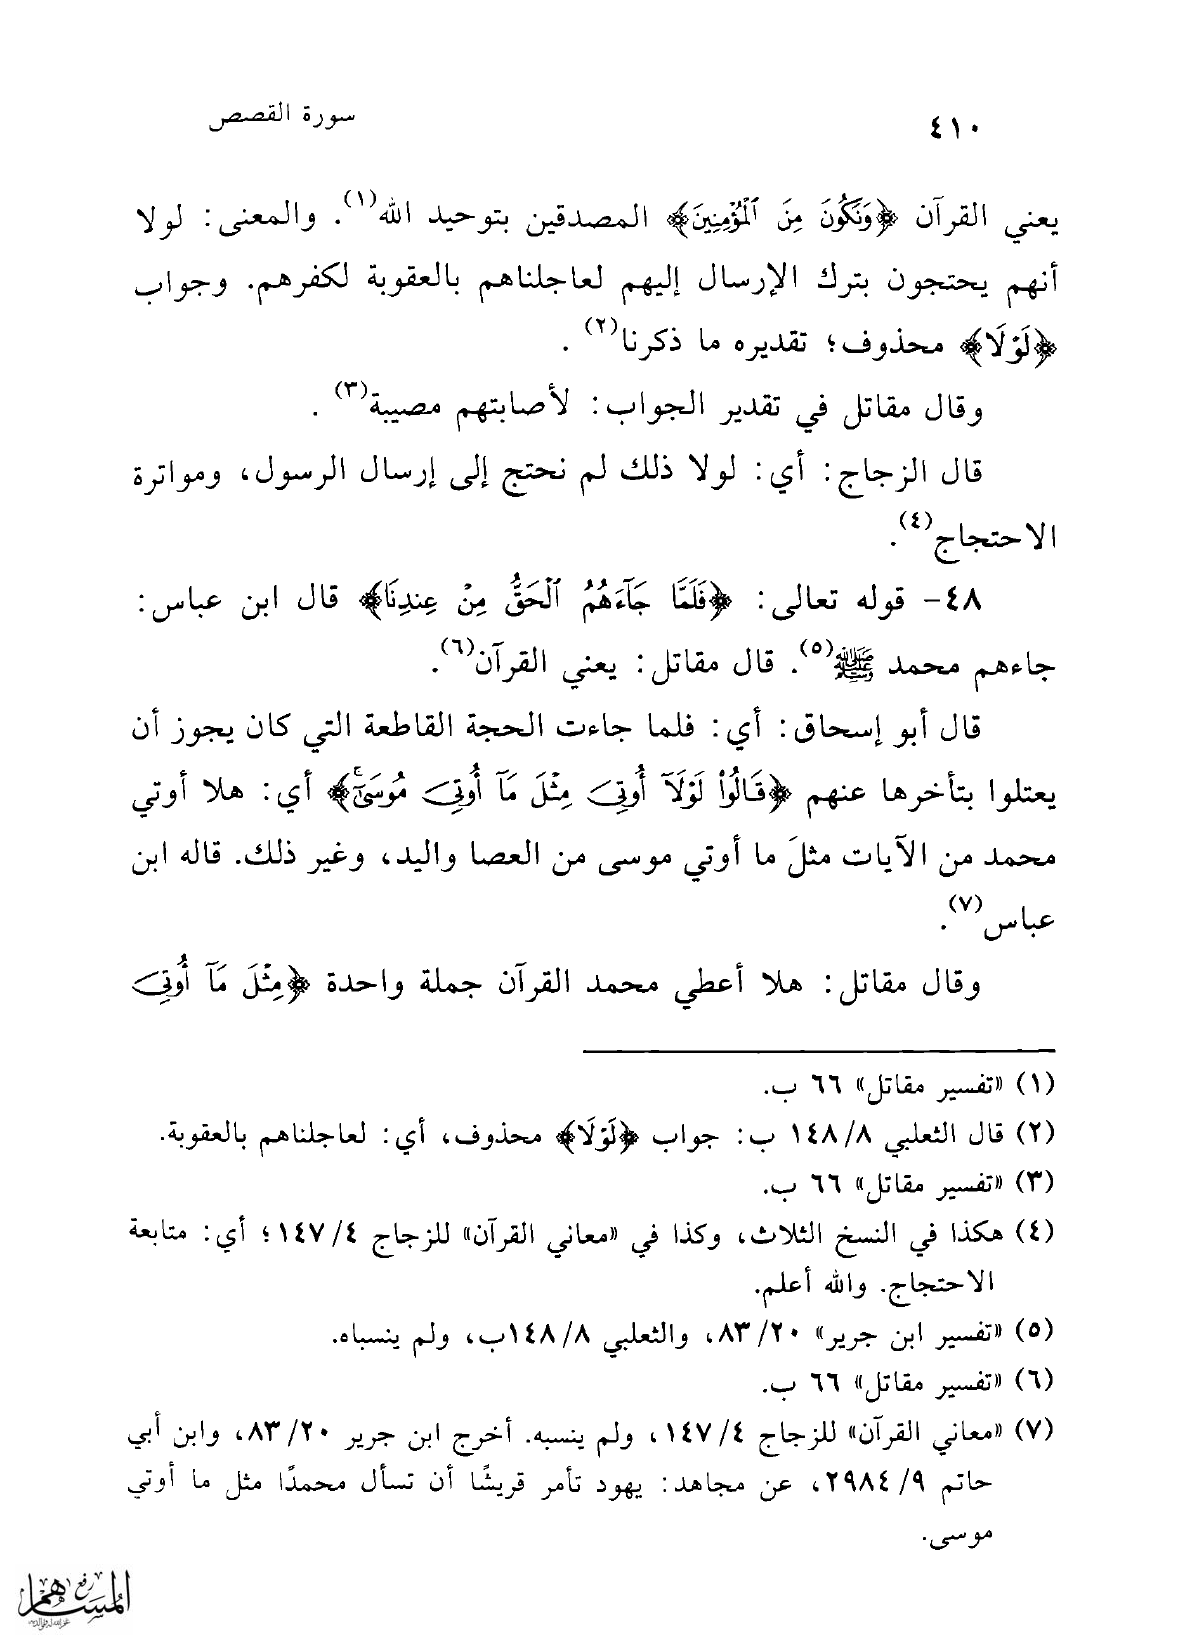 ٤١٠ سورة القصص
يعني القرآن ﴿وَنَكُونَ مِنَ ٱلْمُؤْمِنِينَ﴾ المصدقين بتوحيد الله(١). والمعنى: لولا
أنهم يحتجون بترك الإرسال إليهم لعاجلناهم بالعقوبة لكفرهم. وجواب
﴿لَوْلَا﴾ محذوف؛ تقديره ما ذكرنا(٢) .
وقال مقاتل في تقدير الجواب: لأصابتهم مصيبة(٣) .
قال الزجاج: أي: لولا ذلك لم نحتج إلى إرسال الرسول، ومواترة
الاحتجاج(٤).
٤٨- قوله تعالى: ﴿فَلَمَّا جَآءَهُمُ ٱلْحَقُّ مِنْ عِندِنَا﴾ قال ابن عباس:
جاءهم محمد ﷺ(٥). قال مقاتل: يعني القرآن(٦).
قال أبو إسحاق: أي: فلما جاءت الحجة القاطعة التي كان يجوز أن
يعتلوا بتأخرها عنهم ﴿قَالُوا۟ لَوْلَآ أُوتِىَ مِثْلَ مَآ أُوتِىَ مُوسَىٰٓ ۚ﴾ أي: هلا أوتي
محمد من الآيات مثلَ ما أوتي موسى من العصا واليد، وغير ذلك. قاله ابن
عباس(٧).
وقال مقاتل: هلا أعطي محمد القرآن جملة واحدة ﴿مِثْلَ مَآ أُوتِىَ
(١) «تفسير مقاتل» ٦٦ ب.
(٢) قال الثعلبي ١٤٨/٨ ب: جواب ﴿لَوْلَا﴾ محذوف، أي: لعاجلناهم بالعقوبة.
(٣) «تفسير مقاتل» ٦٦ ب.
(٤) هكذا في النسخ الثلاث، وكذا في «معاني القرآن» للزجاج ١٤٧/٤؛ أي: متابعة
الاحتجاج. والله أعلم.
(٥) «تفسير ابن جرير» ٨٣/٢٠، والثعلبي ١٤٨/٨ب، ولم ينسباه.
(٦) «تفسير مقاتل» ٦٦ ب.
(٧) «معاني القرآن» للزجاج ١٤٧/٤، ولم ينسبه. أخرج ابن جرير ٨٣/٢٠، وابن أبي
حاتم ٢٩٨٤/٩، عن مجاهد: يهود تأمر قريشًا أن تسأل محمدًا مثل ما أوتي
موسى.